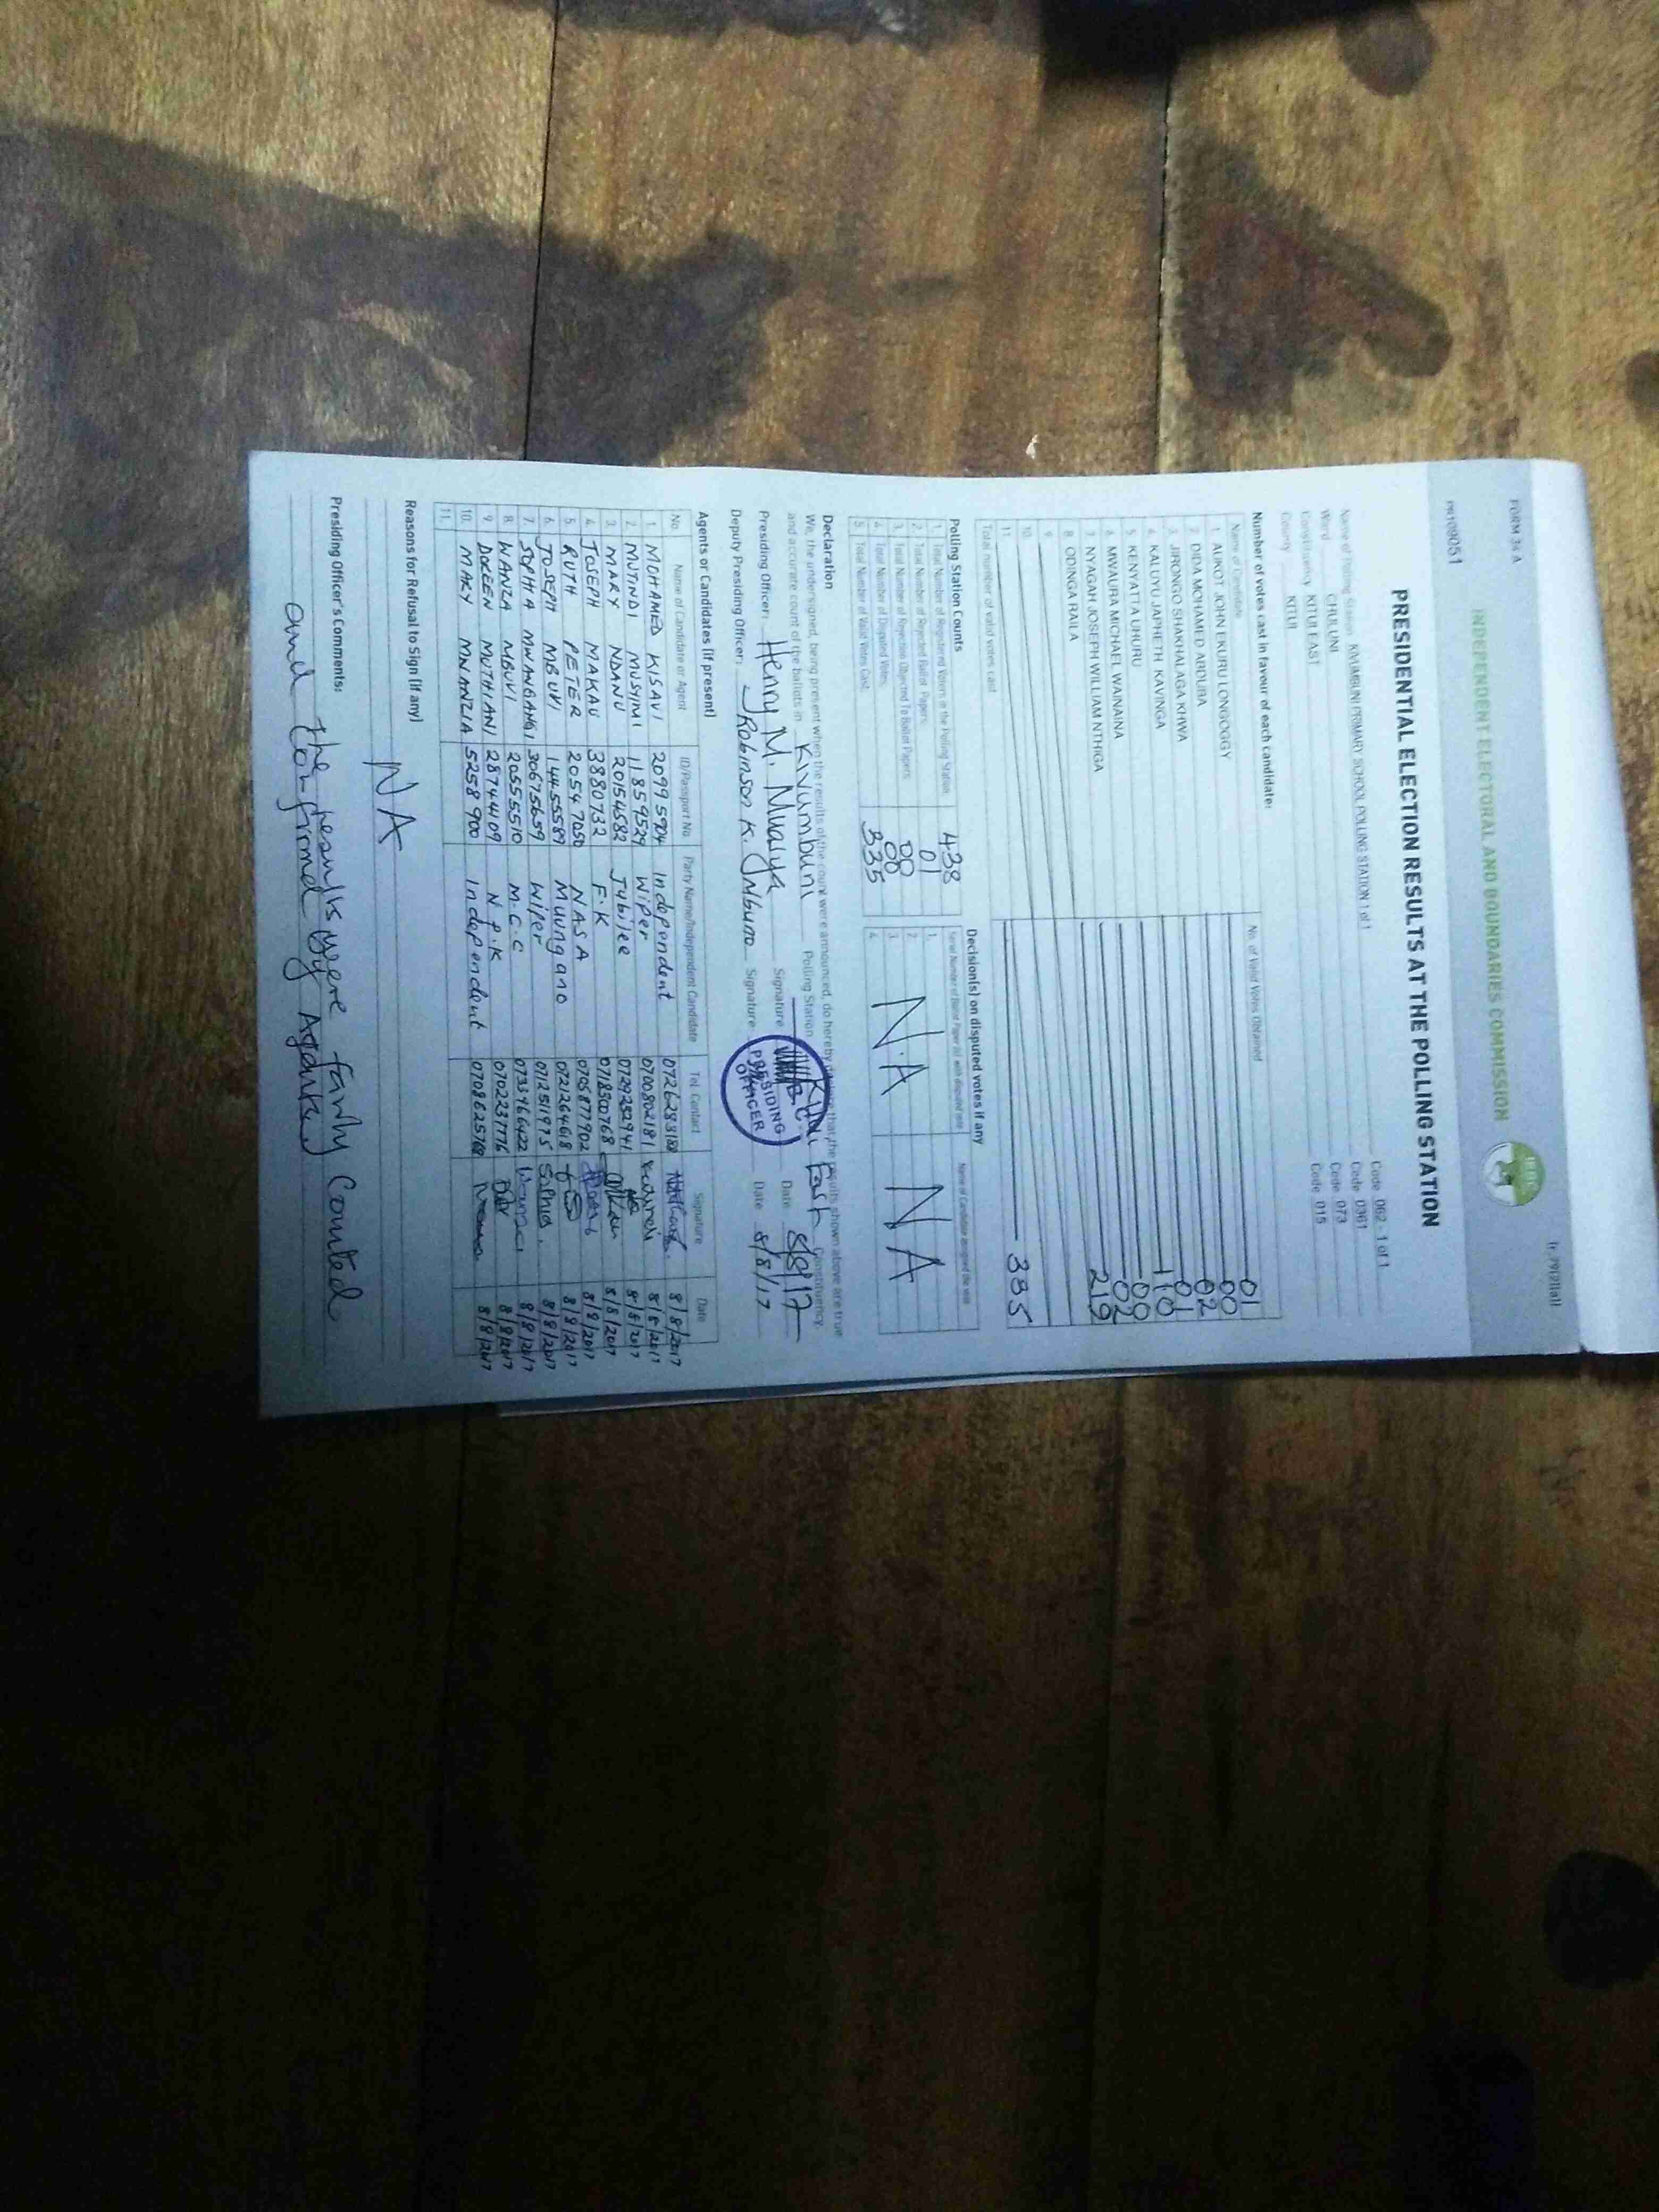 FORM 34 A
INDEPENDENT ELECTORAL AND BOUNDARIES COMMISSION
PR109051
PRESIDENTIAL ELECTION RESULTS AT THE POLLING STATION
Name of Polling Station KIVUMBUNI PRIMARY SCHOOL POLLING STATION 1 of 1 Code 062 - 1 of 1
Ward CHULUNI Code 0361
Constituency KITUI EAST Code 073
County KITUI Code 015
Number of votes cast in favour of each candidate:
Name of Candidate No. of Valid Votes Obtained
1 AUKOT JOHN EKURU LONGOGGY 01
2 DIDA MOHAMED ABDUBA 00
3 JIRONGO SHAKHALAGA KHWA 02
4 KALUYU JAPHETH KAVINGA 01
5 KENYATTA UHURU 110
6 MWAURA MICHAEL WAINAINA 00
7 NYAGAH JOSEPH WILLIAM NTHIGA 02
8 ODINGA RAILA 219
9
10
11
Total number of valid votes cast 335
Polling Station Counts
1. Total Number of Registered Voters in the Polling Station 438
2. Total Number of Rejected Ballot Papers 01
3. Total Number of Rejection Objected To Ballot Papers 00
4. Total Number of Disputed Votes 00
5. Total Number of Valid Votes Cast 335
Decision(s) on disputed votes if any
1.
2.
3.
4.
N.A NA
Declaration
We, the undersigned, being present when the results of the count were announced, do hereby declare that the results shown above are true
and accurate count of the ballots in Kivumbuni Polling Station Kitui East Constituency.
Presiding Officer: Henry M. Mwasya Signature Date 8/8/17
Deputy Presiding Officer: Robinson K. Signature Date 8/8/17
PRESIDING
OFFICER
Agents or Candidates (if present)
No. Name of Candidate or Agent ID/Passport No Party Name/Independent Candidate Tel. Contact Signature Date
1. MOHAMED KISAVI 20995904 Independent 8/8/2017
2. MUTINDI MUSYIMI 11859529 Wiper 0700802181 8/8/2017
3. MARY NDANU 20154582 Jubilee 0729252941 8/8/2017
4. JOSEPH MAKAU 3880732 F.K 8/8/2017
5. RUTH PETER 20547050 NASA 0705877902 8/8/2017
6. JOSEPH MBUVI 14455589 Muungano 0721264618 8/8/2017
7. SOPHIA MWANGANGI 30675659 Wiper 0712511975 Sophia. 8/8/2017
8. WANZA MBUVI 20555510 M.C.C 0733466422 8/8/2017
9. DOREEN MUTHIANI 28744409 N.P.K 0702237776 8/8/2017
10. MARY MNANZIA 5258900 Independent 8/8/2017
11.
Reasons for Refusal to Sign (if any)
NA
Presiding Officer's Comments:
The results were fairly Counted
and Confirmed By Agents